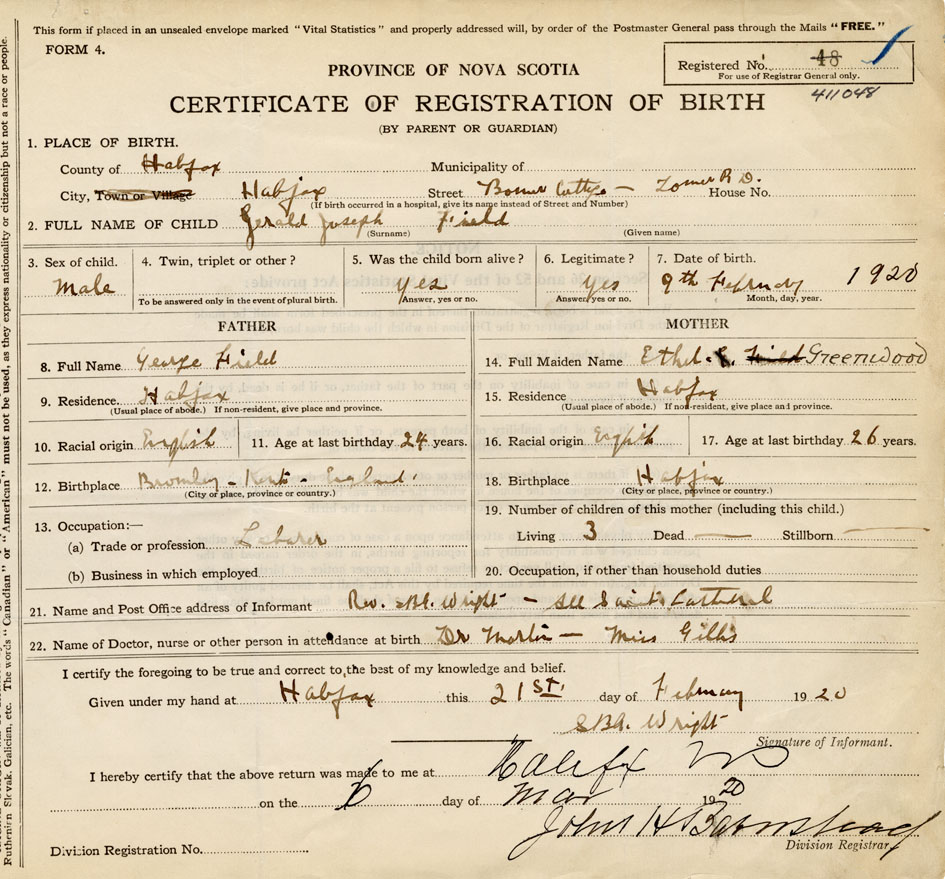 This form if placed in an unsealed envelope marked "Vital Statistics" and properly addressed will, by order of the Postmaster General pass through the Mails "FREE."
FORM 4.
Registered No. 48
For use of Registrar General only.
411048
PROVINCE OF NOVA SCOTIA
CERTIFICATE OF REGISTRATION OF BIRTH
(BY PARENT OR GUARDIAN)
1. PLACE OF BIRTH.
County of Halifax Municipality of
City, Town or Village Halifax Street House No.
(If birth occurred in a hospital, give its name instead of Street and Number)
2. FULL NAME OF CHILD Gerald Joseph Field
(Surname) (Given name)
3. Sex of child. 4. Twin, triplet or other ? 5. Was the child born alive ? 6. Legitimate ? 7. Date of birth.
Male Yes Yes 9th February 1920
To be answered only in the event of plural birth. Answer, yes or no. Answer, yes or no. Month, day, year.
FATHER MOTHER
8. Full Name George Field 14. Full Maiden Name Ethel Field Greenwood
9. Residence Halifax 15. Residence Halifax
(Usual place of abode.) If non-resident, give place and province. (Usual place of abode.) If non-resident, give place and province.
10. Racial origin English 11. Age at last birthday 24 years. 16. Racial origin English 17. Age at last birthday 26 years.
12. Birthplace Bromley - Kent - England 18. Birthplace Halifax
(City or place, province or country.) (City or place, province or country.)
13. Occupation:— 19. Number of children of this mother (including this child.)
(a) Trade or profession Laborer Living 3 Dead — Stillborn —
(b) Business in which employed 20. Occupation, if other than household duties
21. Name and Post Office address of Informant Rev. Wright - All Saints Cathedral
22. Name of Doctor, nurse or other person in attendance at birth Dr Martin — Miss Gillis
I certify the foregoing to be true and correct to the best of my knowledge and belief.
Given under my hand at Halifax this 21st. day of February 1920
Wright
Signature of Informant.
I hereby certify that the above return was made to me at Halifax NS
on the 6 day of Mar 1920
John H Barnstead
Division Registrar.
Division Registration No.
Ruthenian Slovak, Galician, etc. The words "Canadian" or "American" must not be used, as they express nationality or citizenship but not a race or people.